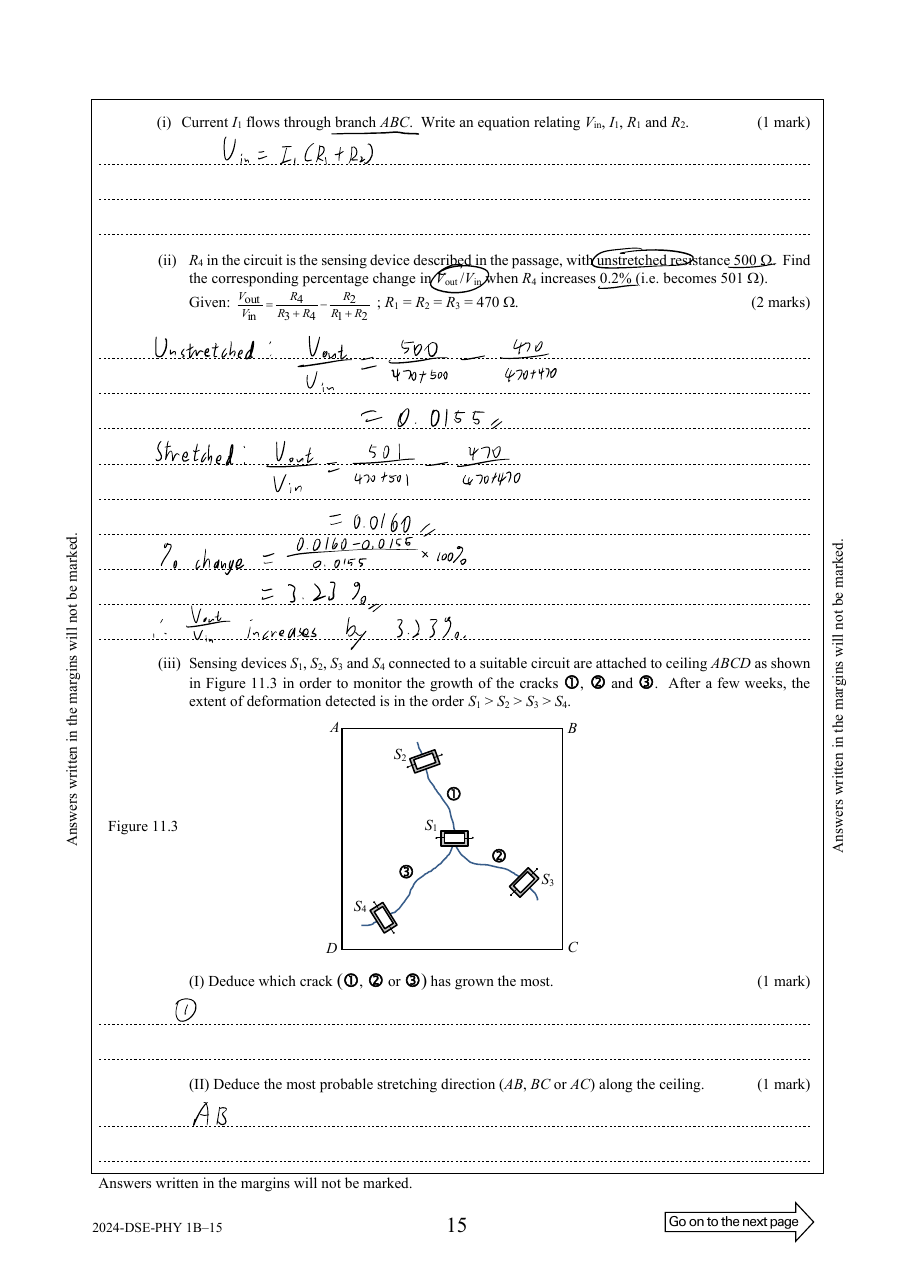 (i) Current I1 flows through branch ABC. Write an equation relating Vin, I1, R1 and R2. (1 mark)
Vin = I1 (R1 + R2)
(ii) R4 in the circuit is the sensing device described in the passage, with unstretched resistance 500 Ω. Find
the corresponding percentage change in Vout/Vin when R4 increases 0.2% (i.e. becomes 501 Ω).
Given: Vout/Vin = R4/(R3 + R4) − R2/(R1 + R2) ; R1 = R2 = R3 = 470 Ω. (2 marks)
Unstretched: Vout/Vin = 500/(470+500) − 470/(470+470)
= 0.0155
Stretched: Vout/Vin = 501/(470+501) − 470/(470+470)
= 0.0160
% change = (0.0160-0.0155)/0.0155 × 100%
= 3.23 %
∴ Vout/Vin increases by 3.23%.
(iii) Sensing devices S1, S2, S3 and S4 connected to a suitable circuit are attached to ceiling ABCD as shown
in Figure 11.3 in order to monitor the growth of the cracks ①, ② and ③. After a few weeks, the
extent of deformation detected is in the order S1 > S2 > S3 > S4.
A B
S2
①
Figure 11.3
S1
②
③
S3
S4
D C
(I) Deduce which crack (①, ② or ③) has grown the most. (1 mark)
①
(II) Deduce the most probable stretching direction (AB, BC or AC) along the ceiling. (1 mark)
AB
Answers written in the margins will not be marked.
Answers written in the margins will not be marked.
Answers written in the margins will not be marked.
2024-DSE-PHY 1B–15 15 Go on to the next page